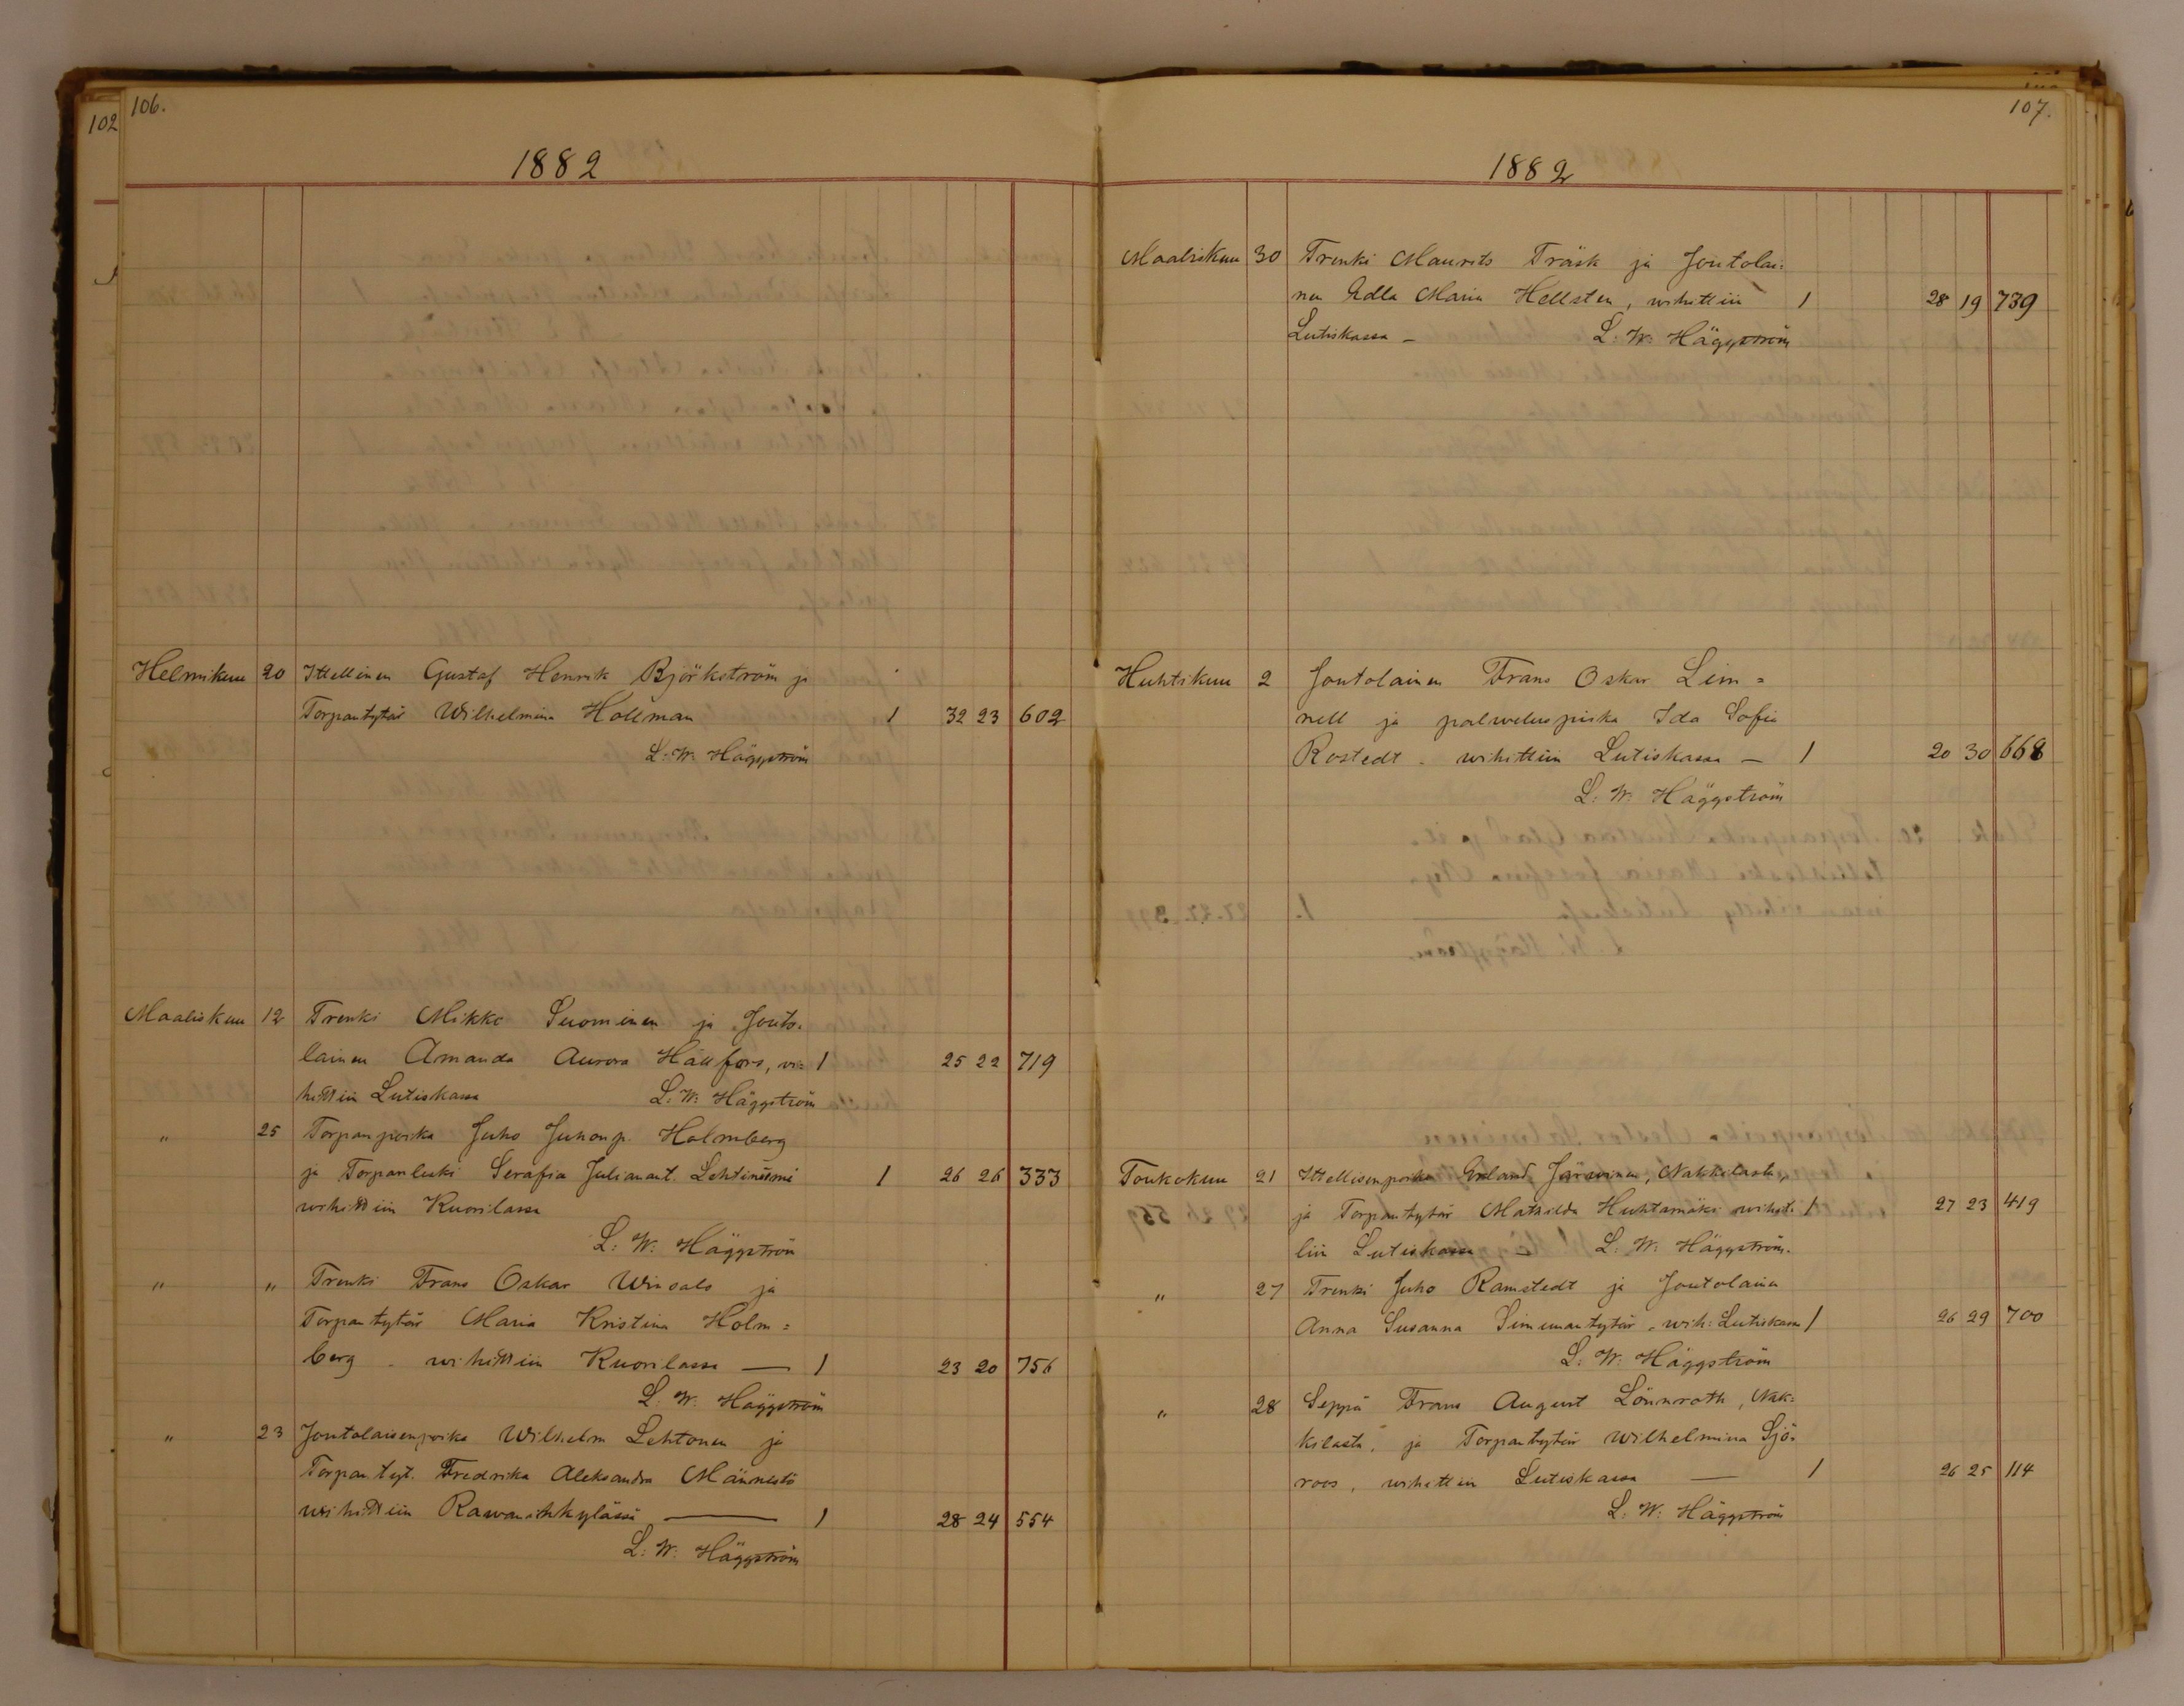 102
106.
1882
Helmikuu 20 Itellinen Gustaf Henrik Björkström ja
Torpantytär Wilhelmina Hollman 1 32 23 602
L. W. Häggström
Maaliskuu 12 Trenki Mikko Suominen ja Jouto-
lainen Amanda Aurora Hällfors, vi= 1 25 22 719
hittiin Lutiskassa L. W. Häggström
" 25 Torpanpoika Juho Juhonp. Holmberg
ja Torpanleski Serafia Julianant. Lehtiniemi 1 26 26 333
wihittiin Kuorilassa
L. W. Häggström
" " Trenki Frans Oskar Winsalo ja
Torpantytär Maria Kristina Holm=
berg . wihittiin Kuorilassa — 1 23 20 756
L. W. Häggström
" 23 Joutolaisenpoika Wilhelm Lehtonen ja
Torpantyt. Fredrika Aleksandra Männestö
wihittiin Rawanikkylässä — 1 28 24 554
L. W. Häggström
107.
1882
Maaliskuu 30 Trenki Maurits Träsk ja Joutolai=
nen Edla Maria Hellsten, wihittiin 1 28 19 739
Lutiskassa – L. W. Häggström
Huhtikuu 2 Joutolainen Frans Oskar Lin=
nell ja palweluspiika Ida Sofia
Rostedt . wihittiin Lutiskassa — 1 20 30 668
L. W. Häggström
Toukokuu 21 Itellisenpoika Erland Järwinen, Nakkilasta,
ja Torpantytär Mathilda Huhtamäki wihit= 1 27 23 419
tiin Lutiskassa – L. W. Häggström.
" 27 Trenki Juho Ramstedt ja Joutolainen
Anna Susanna Simunantytär . wih: Lutiskassa 1 26 29 700
L. W. Häggström
" 28 Seppä Frans August Lönnroth, Nak=
kilasta, ja Torpantytär Wilhelmina Sjö=
roos, wihittiin Lutiskassa — 1 26 25 114
L. W. Häggström